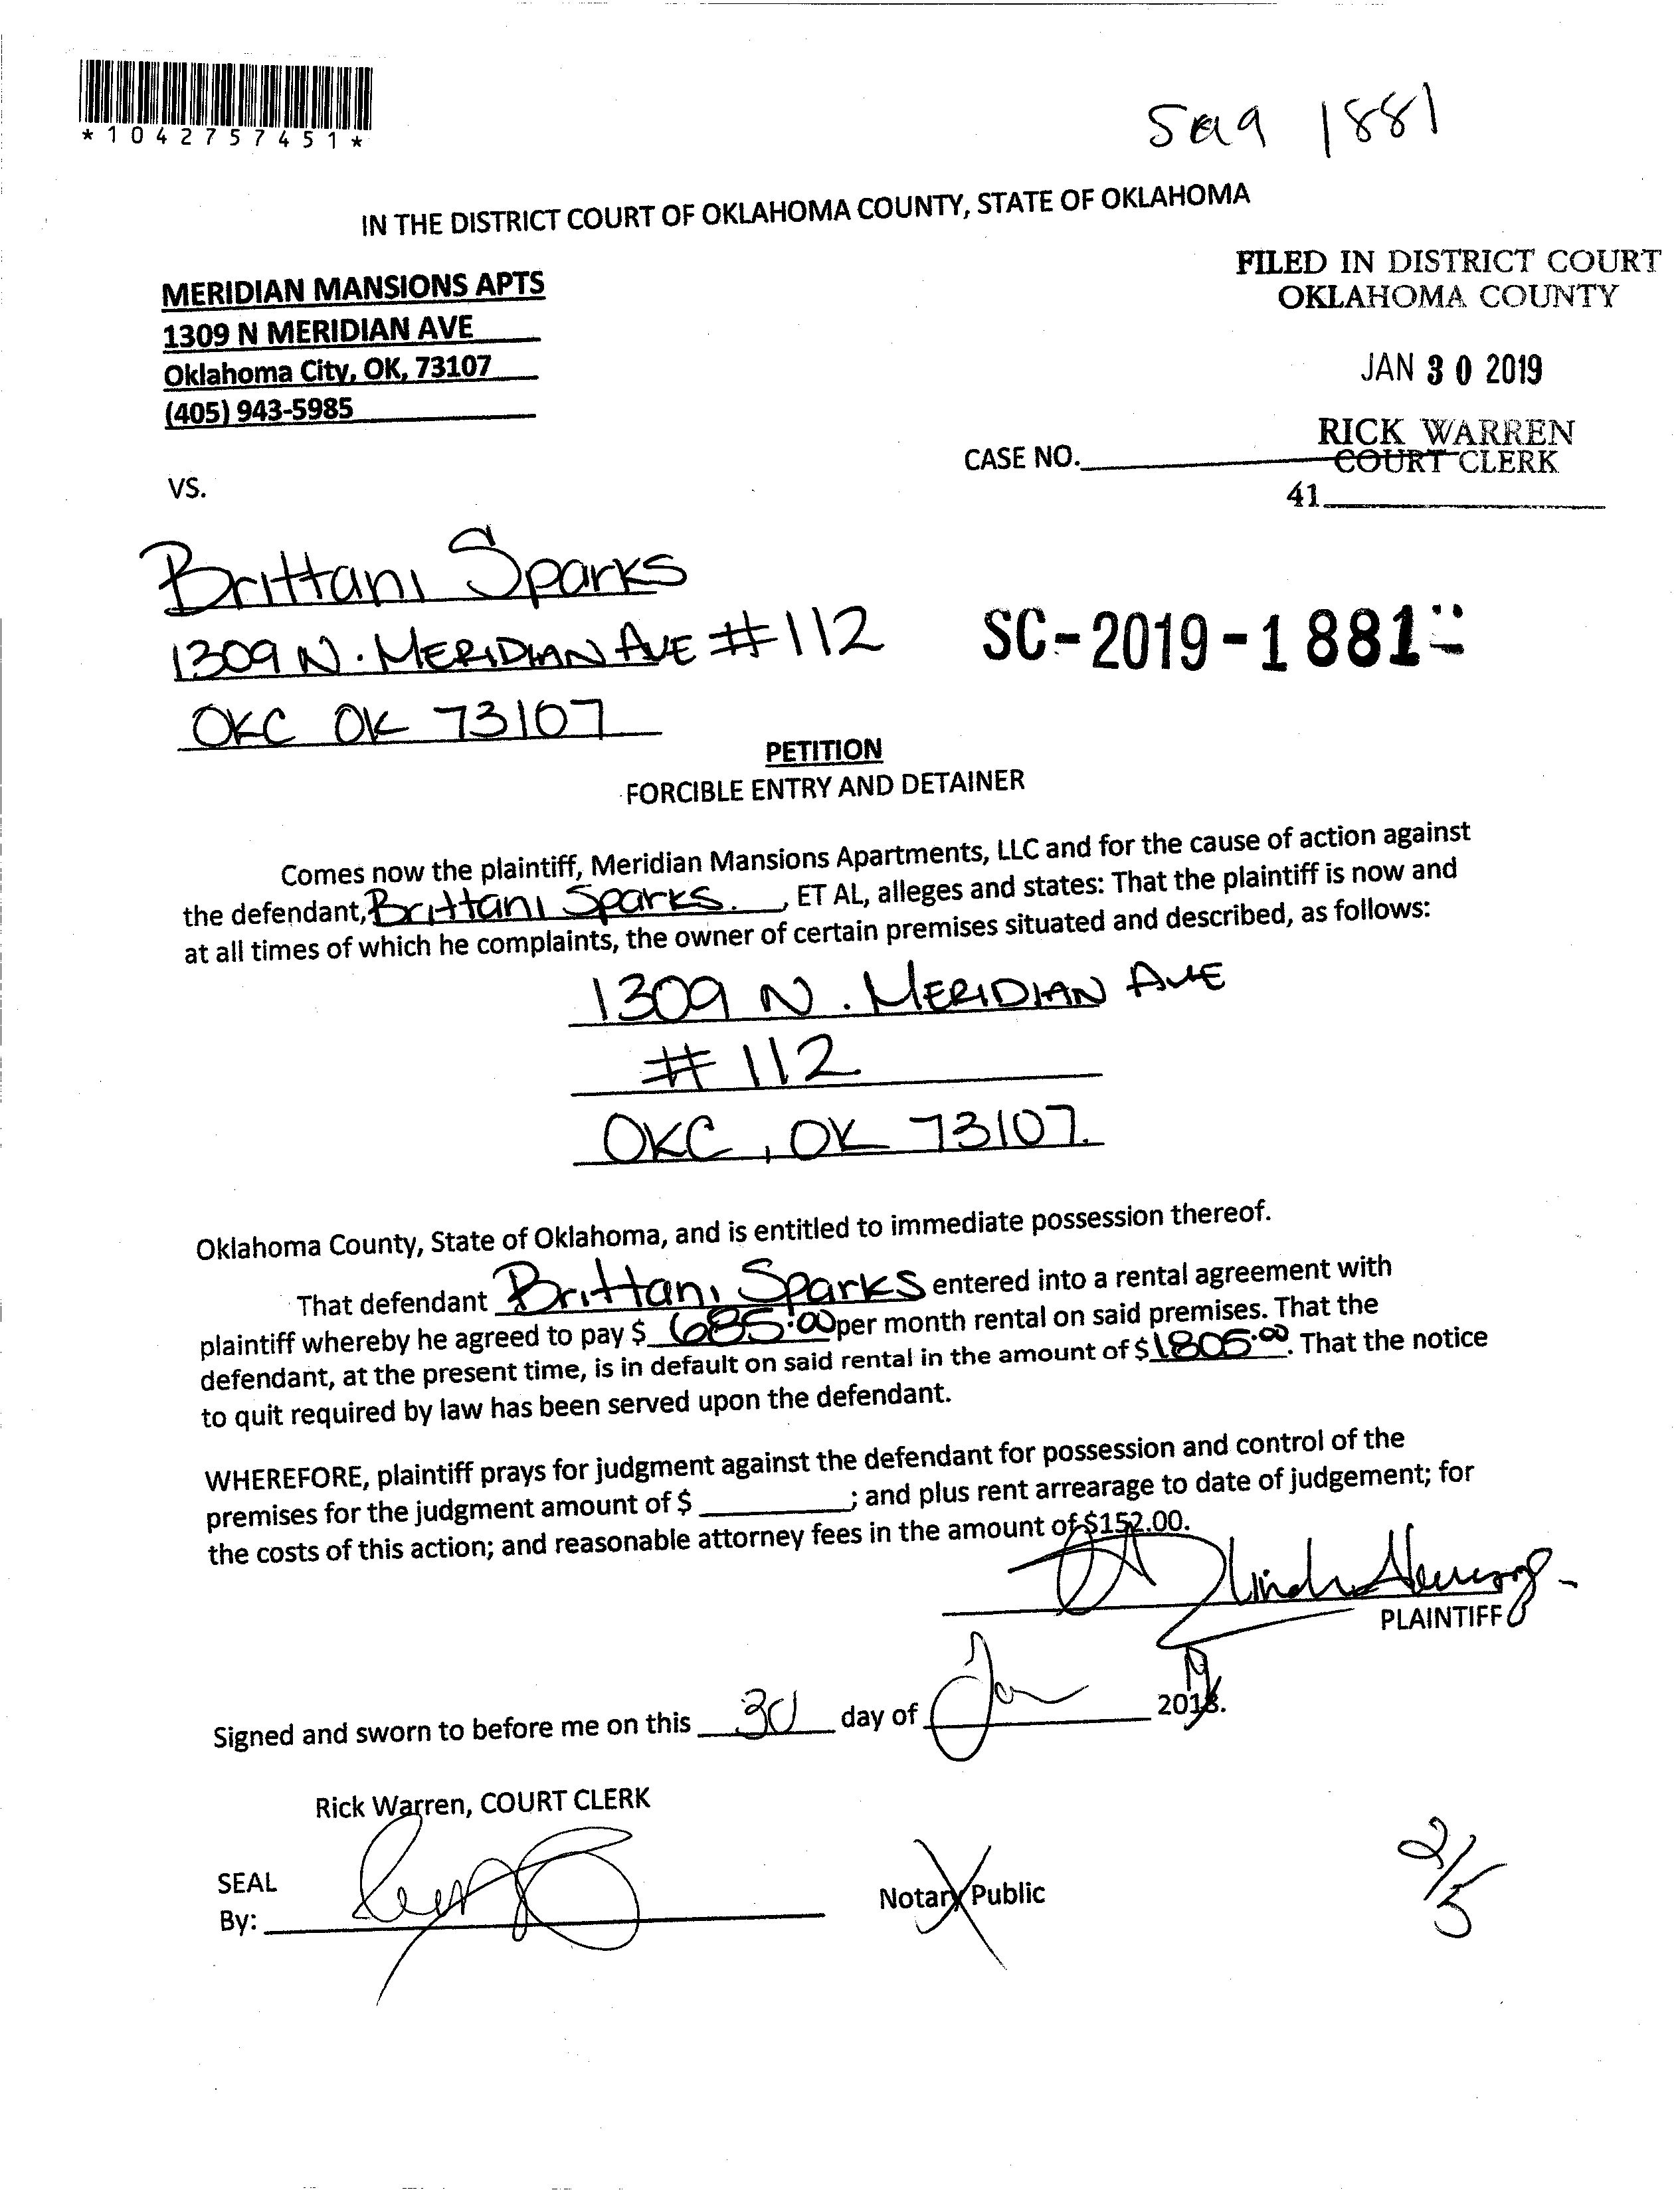 *1042757451*
1881
IN THE DISTRICT COURT OF OKLAHOMA COUNTY, STATE OF OKLAHOMA
MERIDIAN MANSIONS APTS
1309 N MERIDIAN AVE
Oklahoma City, OK, 73107
(405) 943-5985
FILED IN DISTRICT COURT
OKLAHOMA COUNTY
JAN 30 2019
RICK WARREN
COURT CLERK
CASE NO.
41
VS.
Brittani Sparks
1309 N. MERIDIAN AVE #112
OKC OK 73107
SC-2019-1881
PETITION
FORCIBLE ENTRY AND DETAINER
Comes now the plaintiff, Meridian Mansions Apartments, LLC and for the cause of action against
the defendant, Brittani Sparks. , ET AL, alleges and states: That the plaintiff is now and
at all times of which he complaints, the owner of certain premises situated and described, as follows:
1309 N. MERIDIAN AVE
#112
OKC, OK 73107.
Oklahoma County, State of Oklahoma, and is entitled to immediate possession thereof.
That defendant Brittani Sparks entered into a rental agreement with
plaintiff whereby he agreed to pay $ 685.00 per month rental on said premises. That the
defendant, at the present time, is in default on said rental in the amount of $1805.00. That the notice
to quit required by law has been served upon the defendant.
WHEREFORE, plaintiff prays for judgment against the defendant for possession and control of the
premises for the judgment amount of $ ; and plus rent arrearage to date of judgement; for
the costs of this action; and reasonable attorney fees in the amount of $152.00.
PLAINTIFF
Signed and sworn to before me on this 30 day of Jan 2019.
Rick Warren, COURT CLERK
SEAL
By:
Notary Public
2/5